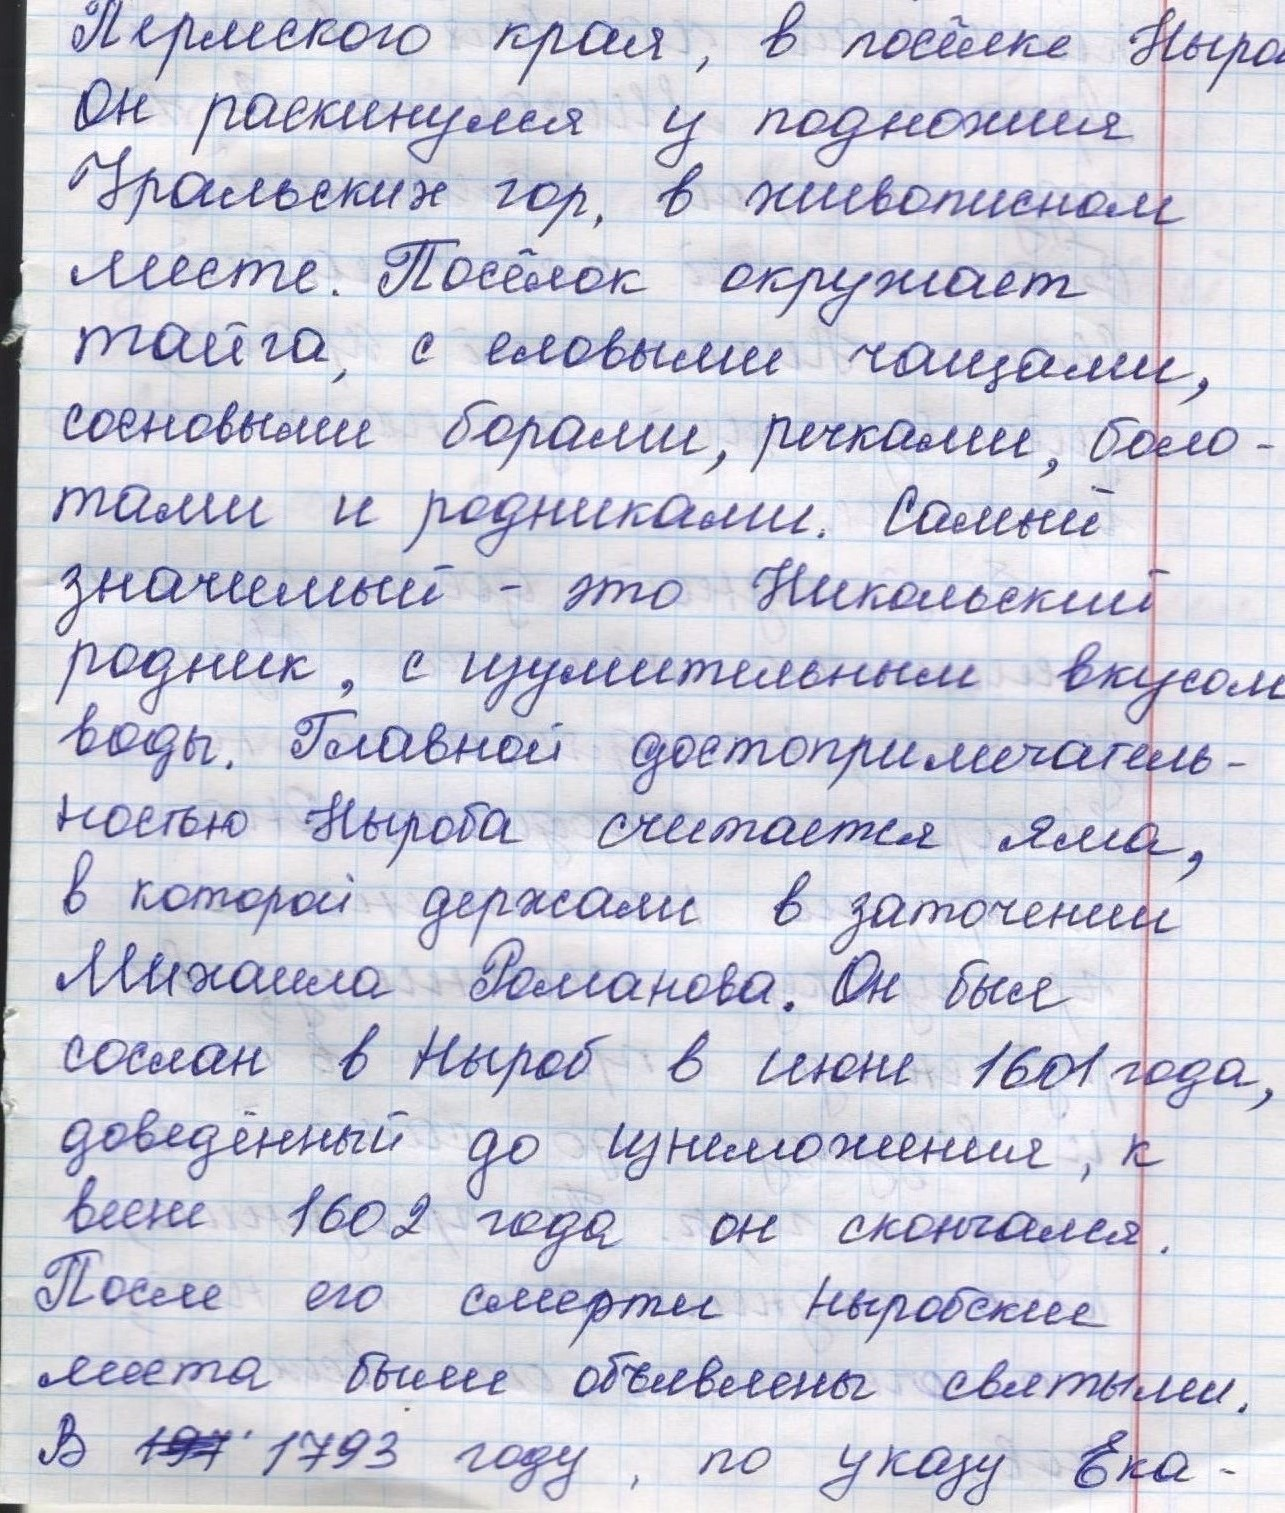 Пермского края, в посёлке Ныро
Он раскинулся у подножия
Уральских гор, в живописном
месте. Посёлок окружает
тайга, с еловыми чащами,
сосновыми борами, речками, боло-
тами и родниками. Самый
значимый - это Никольский
родник, с изумительным вкусом
воды. Главной достопримечатель-
ностью Ныроба считается яма,
в которой держали в заточении
Михаила Романова. Он был
сослан в Ныроб в июне 1601 года,
доведённый до изнеможения, к
весне 1602 года он скончался.
После его смерти ныробские
места были объявлены святыми.
В 197 1793 году, по указу Ека-